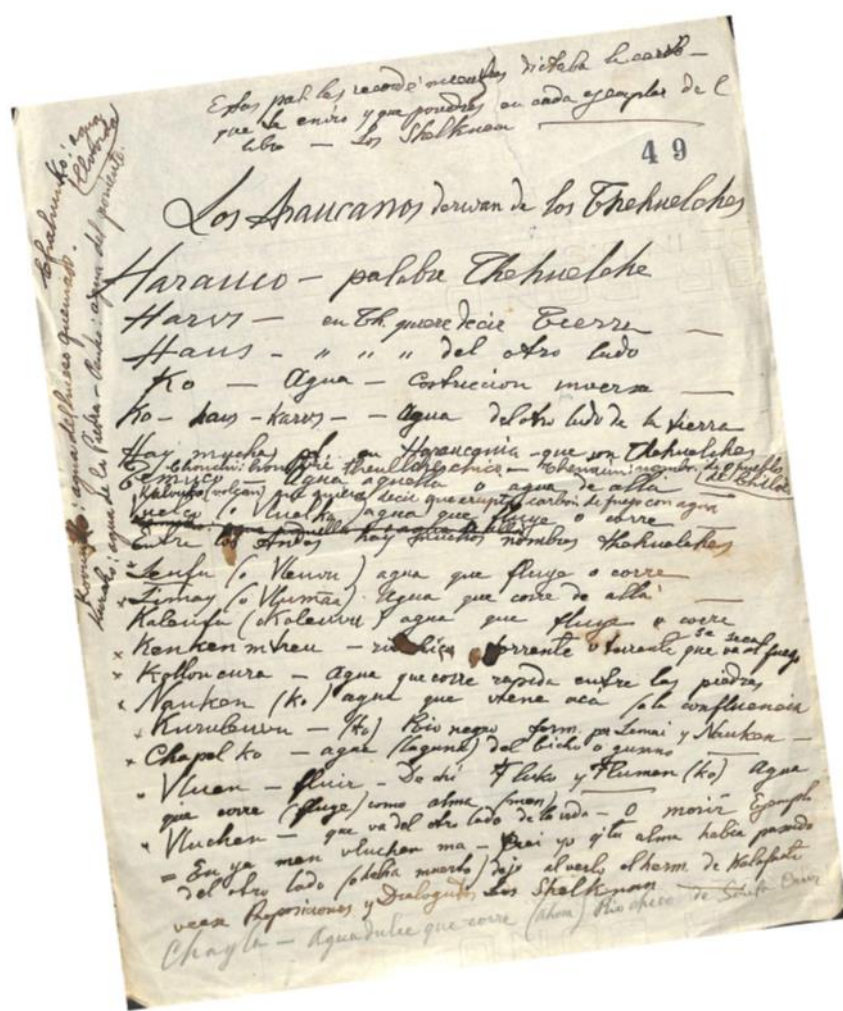 Estas pal. las recordé mientras dictaba la carta -
que la envio y que pondras en cada ejemplar de l
libro - Los Shelknam
49
Los Araucanos derivan de los Thehuelches
Harauco - palabra Thehuelche
Harvs - en Th. quiere decir Tierra
Haus - " " " del otro lado
Ko - Agua - costruccion inversa
Ko - haus - karvs - - Agua del otro lado de la tierra
Hay muchas pal. en Haraucania - que son Thehuelches
Temuco - Agua aquella o agua de allá
(volcan) que quiere decir que erupta carbon de fuego con agua
Vuelco (o Vluelko) agua que fluye o corre
Entre los Andes hay muchos nombres thehuelches
* Leufu (o Vleuvu) agua que fluye o corre
* Limay (o Vlumäa) Agua que corre de allá
Kaleufu (o Koleuvu) agua que fluye o corre
* Kenken mtreu - torrente o torrente que se seca que va al fuego
* Kolloncura - agua que corre rapida entre las piedras
* Nauken (ko) agua que viene acá /a la confluencia
* Kuruleuvu - (Ko) Rio negro form. por Lemai y Nauken -
* Chapel ko - agua (laguna) del bicho o gusano
* Vluen - fluir - De ahi Fluko y Flumen (ko) Agua
que corre (fluye) como alma (men)
* Vluchen - que va del otro lado de la vida - o morir Ejemplo
= En ya men vluchen ma - Crei yo q' tu alma habia pasado
del otro lado (o habia muerto) dijo al verlo el herm. de
vease Proposiciones y Dialoguitos Los Shelknam
Chayla - Agua dulce que corre (ahora) Rio chico de Santa Cruz
agua del hueso quemado.
agua de la Piedra - agua del poniente.
agua
llovida